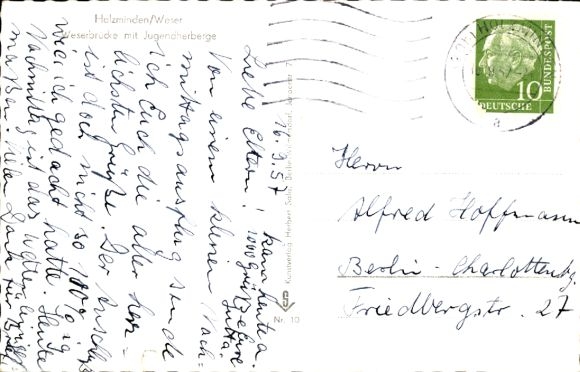 Holzminden/Weser
Weserbrücke mit Jugendherberge
16.9.57
Liebe Eltern!
Von einem kleinen Nach=
mittagsausflug sende
ich Euch die aller herz=
lichsten Grüße. Der Anschluß
ist doch nicht so 100%ig
wie ich gedacht hatte. Heute
Nachmittag ist das
maßen
kann heute
1000 Grüße Eure
Jutta.
Kunstverlag Herbert
Nr. 10
HOLZMINDEN
a
DEUTSCHE
BUNDESPOST
10
Herrn
Alfred Hoffmann
Berlin-Charlottenbg.
Friedbergstr. 27